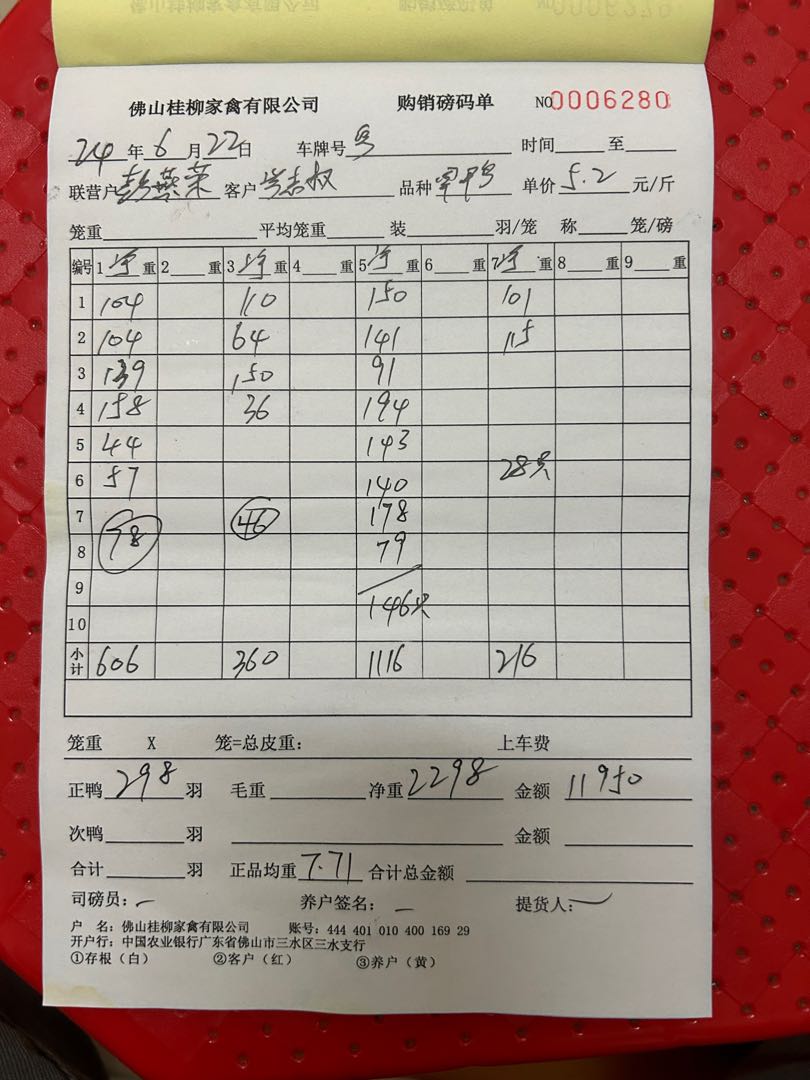 佛山桂柳家禽有限公司 购销磅码单 NO0006280
24年6月22日 车牌号 时间 至
联营户彭燕荣 客户 品种 单价5.2元/斤
笼重 平均笼重 装 羽/笼 称 笼/磅
编号 1净重 2 重 3净重 4 重 5净重 6 重 7净重 8 重 9 重
1 104 110 150 101
2 104 64 141 115
3 139 150 91
4 158 36 194
5 44 143
6 57 140 28只
7 78 46 178
8 79
9
10 146只
小计 606 360 1116 216
笼重 X 笼=总皮重: 上车费
正鸭298羽 毛重 净重2298 金额11950
次鸭 羽 金额
合计 羽 正品均重7.71 合计总金额
司磅员: 养户签名: 提货人:
户 名: 佛山桂柳家禽有限公司 账号: 444 401 010 400 169 29
开户行: 中国农业银行广东省佛山市三水区三水支行
①存根(白) ②客户(红) ③养户(黄)